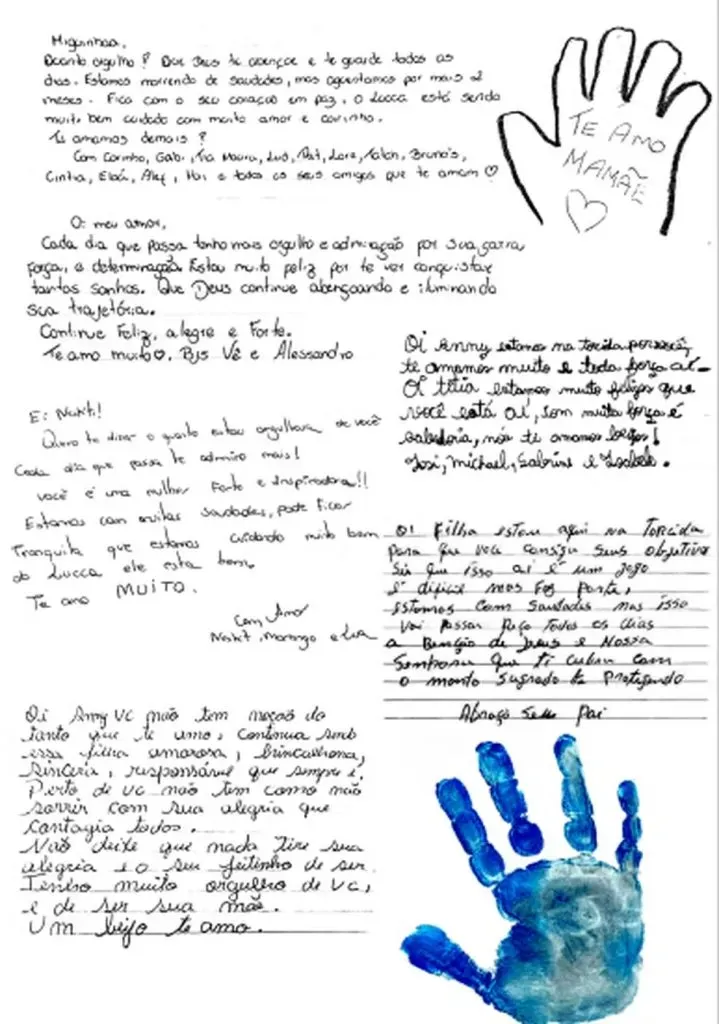 Miguinhaa,
Quanto orgulho! Que Deus te abençoe e te guarde todos os
dias. Estamos morrendo de saudades, mas aguentamos por mais 2
meses. Fica com o seu coração em paz, o Lucca está sendo
muito bem cuidado com muito amor e carinho.
Te amamos demais!
Com Carinho, Gabi, Tia Maura, Lud, Pat, Lara,
Cintia, Alef, e todos os seus amigos que te amam
TE AMO
MAMÃE
Oi meu amor,
Cada dia que passa tenho mais orgulho e admiração por sua garra
força, e determinação. Estou muito feliz por te ver conquistar
tantos sonhos. Que Deus continue abençoando e iluminando
sua trajetória.
Continue Feliz, alegre e Forte.
Te amo muito. Bjs Vê e Alessandro
Oi Anny estamos na torcida por você,
te amamos muito e toda força aí
Oi titia estamos muito felizes que
você está aí, com muita força é
sabedoria, nós te amamos beijos!
Josi, Michael, Sabrina e Isabele.
Ei
Quero te dizer o quanto estou orgulhosa de você
Cada dia que passa te admiro mais!
você é uma mulher Forte e Inspiradora!!
Estamos com muitas saudades, pode ficar
Tranquila que estamos cuidando muito bem
do Lucca ele esta bem.
Te amo MUITO.
Com Amor
Morango e Lua
Oi Filha estou aqui na Torcida
para que voce consiga seus objetivo
Sei que isso ai é um jogo
é dificil mas Faz parte,
estamos com saudades mas isso
vai passar peço Todos os dias
a Benção de Deus e Nossa
Senhora que ti cubra com
o manto sagrado te protegendo
Abraço Seu Pai
Oi Anny vc não tem noção do
tanto que te amo, continua sendo
essa filha amorosa, brincalhona,
sincera, responsável que sempre é.
Perto de vc não tem como não
sorrir com sua alegria que
contagia todos.
Não deixe que nada tire sua
alegria e o seu jeitinho de ser
Tenho muito orgulho de vc,
e de ser sua mãe.
Um beijo te amo.